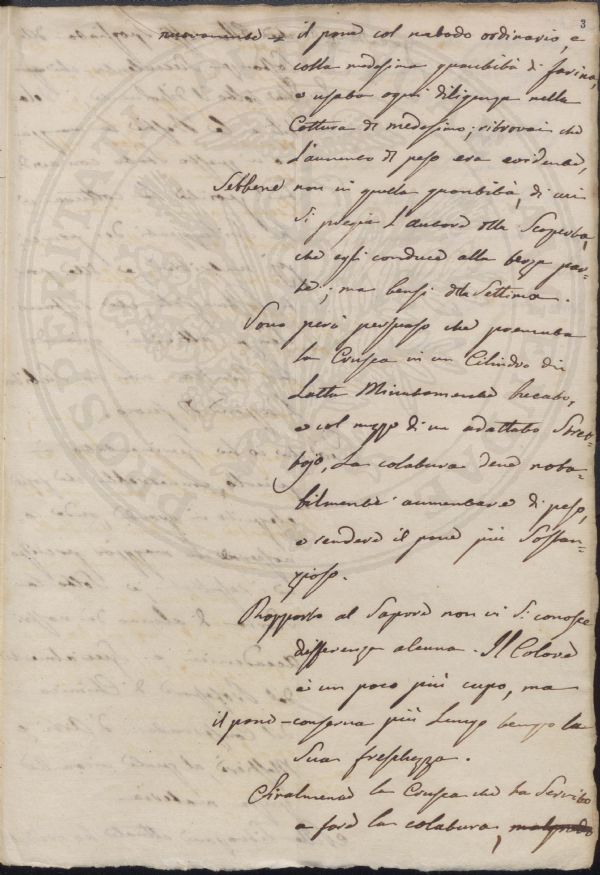 3
nuovamente il pane col metodo ordinario, e
colla medesima quantità di farina,
e usata ogni diligenza nella
Cottura di medesimo; ritrovai che
l'aumento di peso era evidente,
Sebbene non in quella quantità, di cui
si pregia l'autore della Scoperta,
che egli conduce alla terza par-
te; ma bensì della Settima.
Sono però persuaso che premuta
la Crusca in un Cilindro di
Latta Minutamente
e col mezzo di un adattato Stret-
tojo, La colatura deve nota-
bilmente aumentare di peso,
e rendere il pane più Sostan-
zioso.
Rapporto al Sapore non vi si conosce
differenza alcuna. Il Colore
è un poco più cupo, ma
il pane conserva più lungo tempo la
sua freschezza.
Finalmente la Crusca che ha Servito
a fare la colatura,
PROSPERITAT